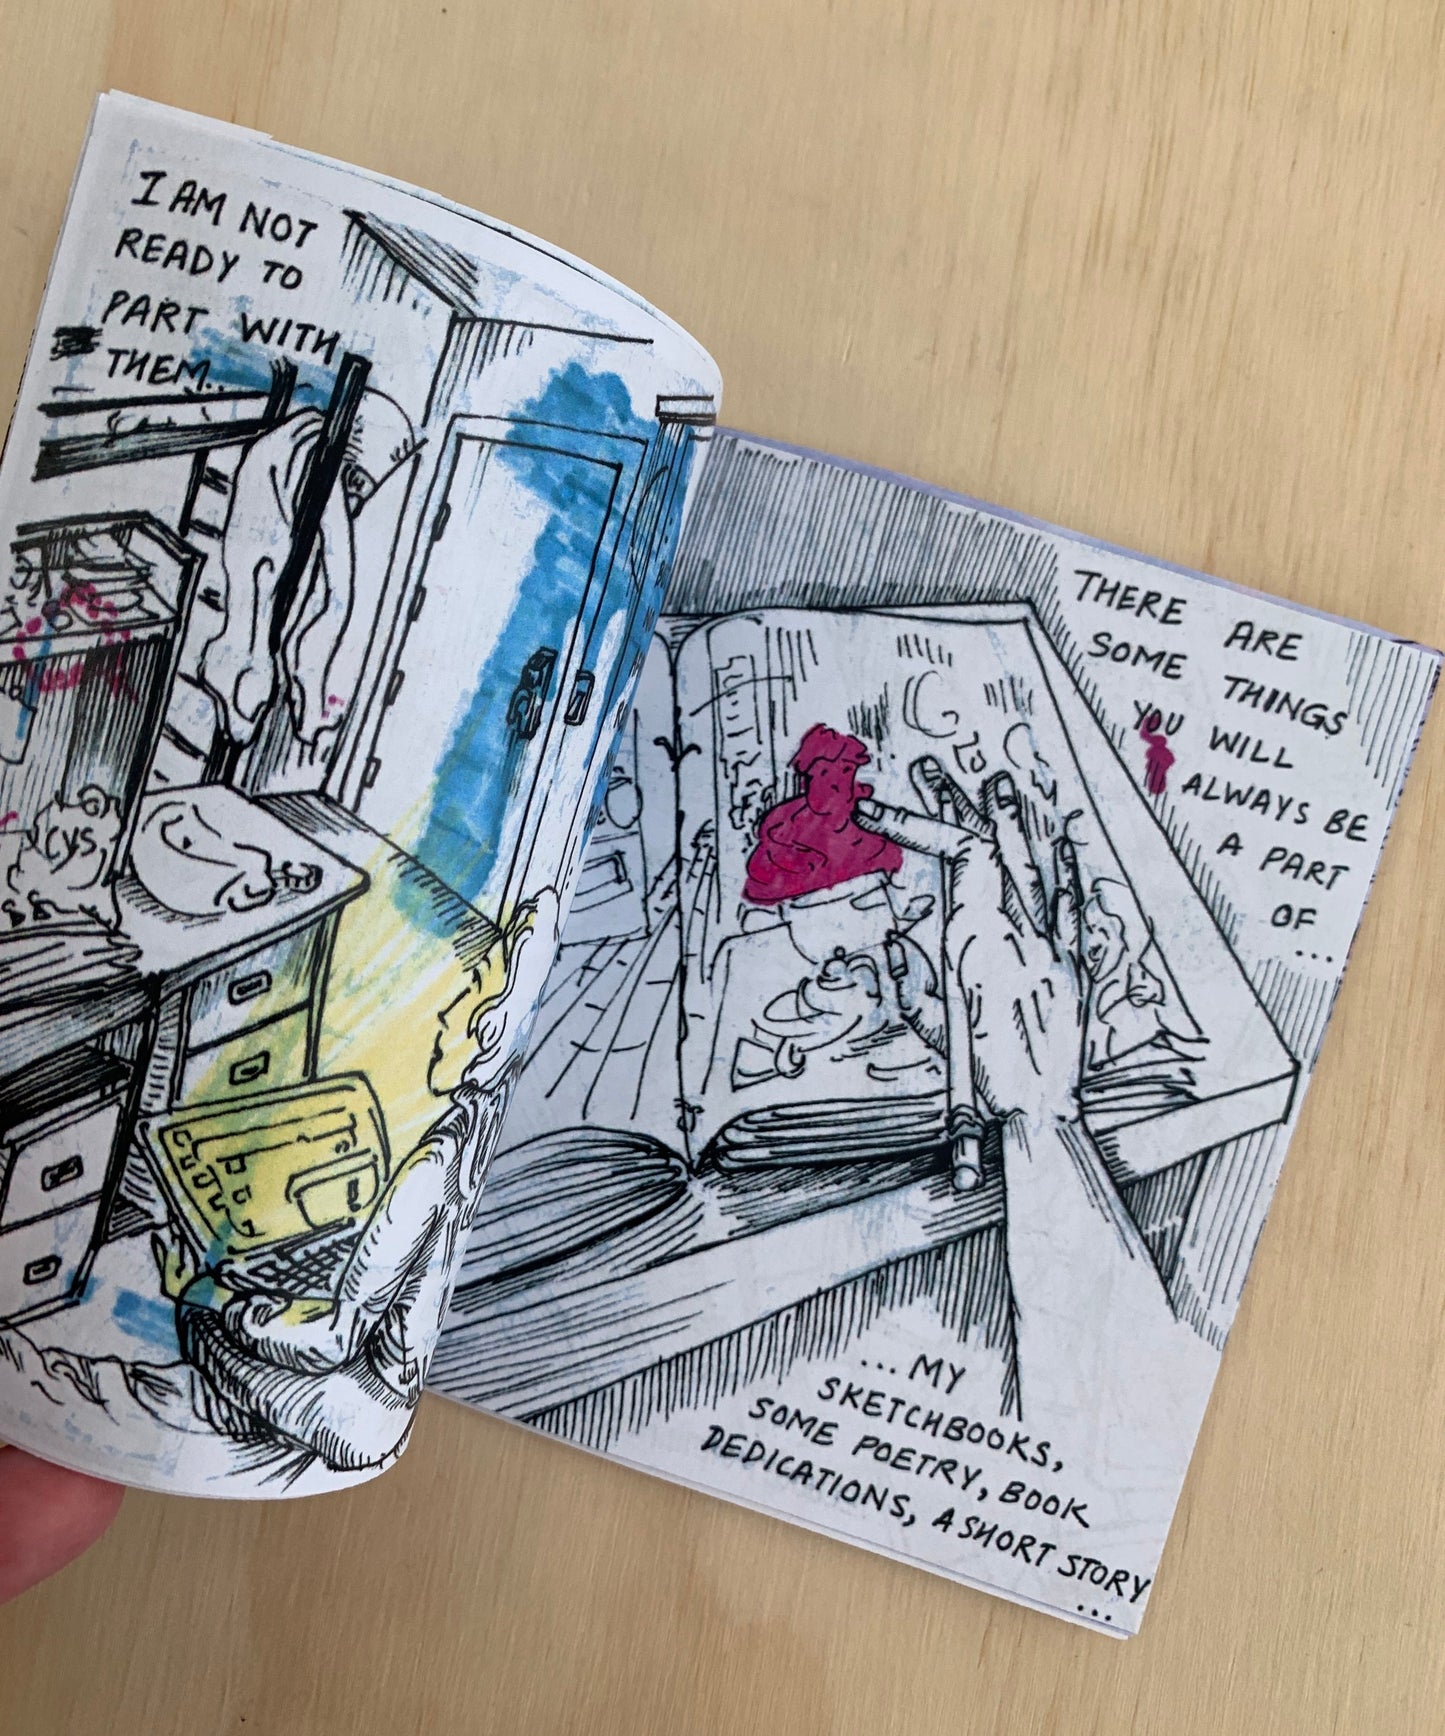 I AM NOT
READY TO
PART WITH
THEM...
THERE ARE
SOME THINGS
YOU WILL
ALWAYS BE
A PART
OF
...
... MY
SKETCHBOOKS,
SOME POETRY, BOOK
DEDICATIONS, A SHORT STORY
...